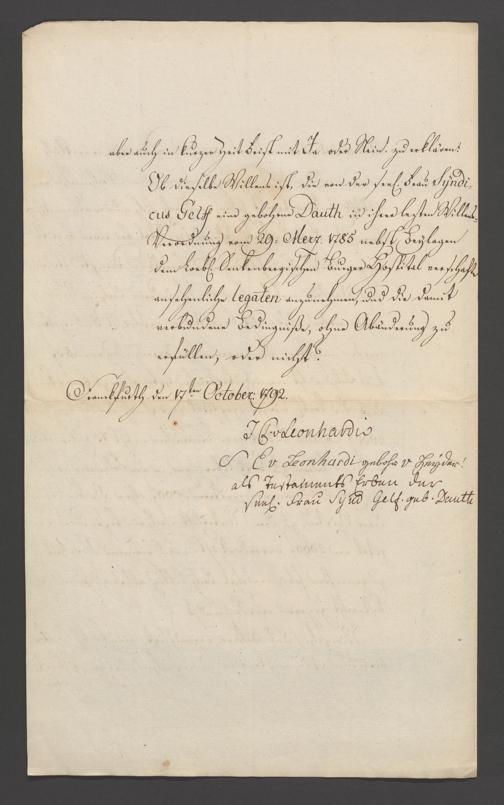 aber auch in kurzer Zeit Frist mit Ja oder Nein. zu erklären:
Ob dieselbe Willens ist, die von der seel. Frau Syndi-
cus Gelff eine gebohrne Dauth in ihrer lezten Willens
Verordnung vom 29= Merz. 1785 nebst Beylagen
dem löbl. Senkenbergischen Burger Hospital verschafte
ansehnliche legaten anzunehmen, und die damit
verbundene Bedingniße, ohne Abänderung zu
erfüllen, oder nicht?
Franckfurth den 17ten October: 1792.
J C v Leonhardi
S E v Leonhardi gebohr v Heyder:
als Testaments Erben der
seel. Frau Synd Gelf: geb. Dauth